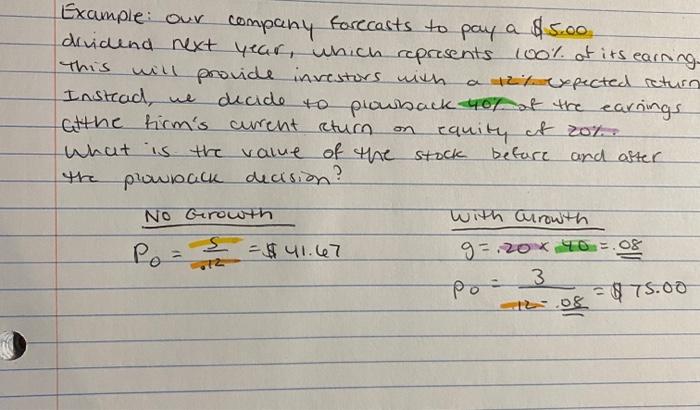 Example: our company forecasts to pay a $5.00
dividend next year, which represents 100% of its earning.
This will provide investors with a 12% expected return
Instead, we decide to plowback 40% of the earnings
at the firm's current return on equity of 20%.
What is the value of the stock before and after
the plowback decision?
No Growth
P₀ = 5/.12 = $41.67
With Growth
g = .20 x .40 = .08
P₀ = 3/.12-.08 = $75.00